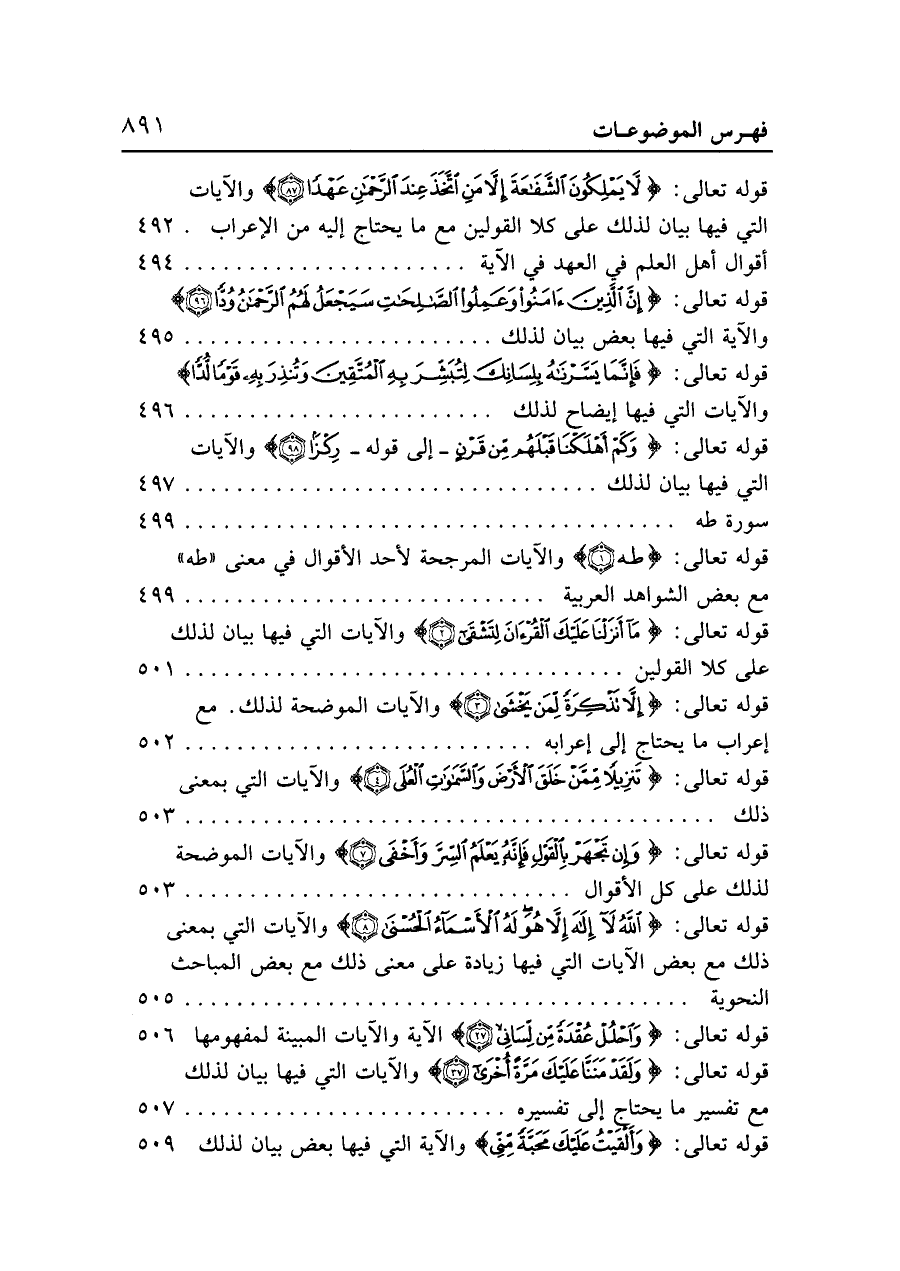 فهـرس الموضوعـات ٨٩١
قوله تعالى: ﴿ لَّا يَمْلِكُونَ ٱلشَّفَـٰعَةَ إِلَّا مَنِ ٱتَّخَذَ عِندَ ٱلرَّحْمَـٰنِ عَهْدًا ٨٧﴾ والآيات
التي فيها بيان لذلك على كلا القولين مع ما يحتاج إليه من الإعراب . ٤٩٢
أقوال أهل العلم في العهد في الآية . . . . . . . . . . . . . . . . . . . . . . ٤٩٤
قوله تعالى: ﴿ إِنَّ ٱلَّذِينَ ءَامَنُوا۟ وَعَمِلُوا۟ ٱلصَّـٰلِحَـٰتِ سَيَجْعَلُ لَهُمُ ٱلرَّحْمَـٰنُ وُدًّا ٩٦﴾
والآية التي فيها بعض بيان لذلك . . . . . . . . . . . . . . . . . . . . . . . . ٤٩٥
قوله تعالى: ﴿ فَإِنَّمَا يَسَّرْنَـٰهُ بِلِسَانِكَ لِتُبَشِّرَ بِهِ ٱلْمُتَّقِينَ وَتُنذِرَ بِهِۦ قَوْمًا لُّدًّا﴾
والآيات التي فيها إيضاح لذلك . . . . . . . . . . . . . . . . . . . . . . . . ٤٩٦
قوله تعالى: ﴿ وَكَمْ أَهْلَكْنَا قَبْلَهُم مِّن قَرْنٍ ـ إلى قوله ـ رِكْزًۢا ٩٨﴾ والآيات
التي فيها بيان لذلك . . . . . . . . . . . . . . . . . . . . . . . . . . . . . . . . ٤٩٧
سورة طه . . . . . . . . . . . . . . . . . . . . . . . . . . . . . . . . . . . . . . ٤٩٩
قوله تعالى: ﴿طه ١﴾ والآيات المرجحة لأحد الأقوال في معنى «طه»
مع بعض الشواهد العربية . . . . . . . . . . . . . . . . . . . . . . . . . . . . ٤٩٩
قوله تعالى: ﴿ مَآ أَنزَلْنَا عَلَيْكَ ٱلْقُرْءَانَ لِتَشْقَىٰٓ ٢﴾ والآيات التي فيها بيان لذلك
على كلا القولين . . . . . . . . . . . . . . . . . . . . . . . . . . . . . . . . . . ٥٠١
قوله تعالى: ﴿ إِلَّا تَذْكِرَةً لِّمَن يَخْشَىٰ ٣﴾ والآيات الموضحة لذلك. مع
إعراب ما يحتاج إلى إعرابه . . . . . . . . . . . . . . . . . . . . . . . . . . . ٥٠٢
قوله تعالى: ﴿ تَنزِيلًا مِّمَّنْ خَلَقَ ٱلْأَرْضَ وَٱلسَّمَـٰوَٰتِ ٱلْعُلَى ٤﴾ والآيات التي بمعنى
ذلك . . . . . . . . . . . . . . . . . . . . . . . . . . . . . . . . . . . . . . . . . ٥٠٣
قوله تعالى: ﴿ وَإِن تَجْهَرْ بِٱلْقَوْلِ فَإِنَّهُۥ يَعْلَمُ ٱلسِّرَّ وَأَخْفَى ٧﴾ والآيات الموضحة
لذلك على كل الأقوال . . . . . . . . . . . . . . . . . . . . . . . . . . . . . . ٥٠٣
قوله تعالى: ﴿ ٱللَّهُ لَآ إِلَـٰهَ إِلَّا هُوَ ۖ لَهُ ٱلْأَسْمَآءُ ٱلْحُسْنَىٰ ٨﴾ والآيات التي بمعنى
ذلك مع بعض الآيات التي فيها زيادة على معنى ذلك مع بعض المباحث
النحوية . . . . . . . . . . . . . . . . . . . . . . . . . . . . . . . . . . . . . . . ٥٠٥
قوله تعالى: ﴿ وَٱحْلُلْ عُقْدَةً مِّن لِّسَانِى ٢٧﴾ الآية والآيات المبينة لمفهومها ٥٠٦
قوله تعالى: ﴿ وَلَقَدْ مَنَنَّا عَلَيْكَ مَرَّةً أُخْرَىٰٓ ٣٧﴾ والآيات التي فيها بيان لذلك
مع تفسير ما يحتاج إلى تفسيره . . . . . . . . . . . . . . . . . . . . . . . . . ٥٠٧
قوله تعالى: ﴿ وَأَلْقَيْتُ عَلَيْكَ مَحَبَّةً مِّنِّى﴾ والآية التي فيها بعض بيان لذلك ٥٠٩